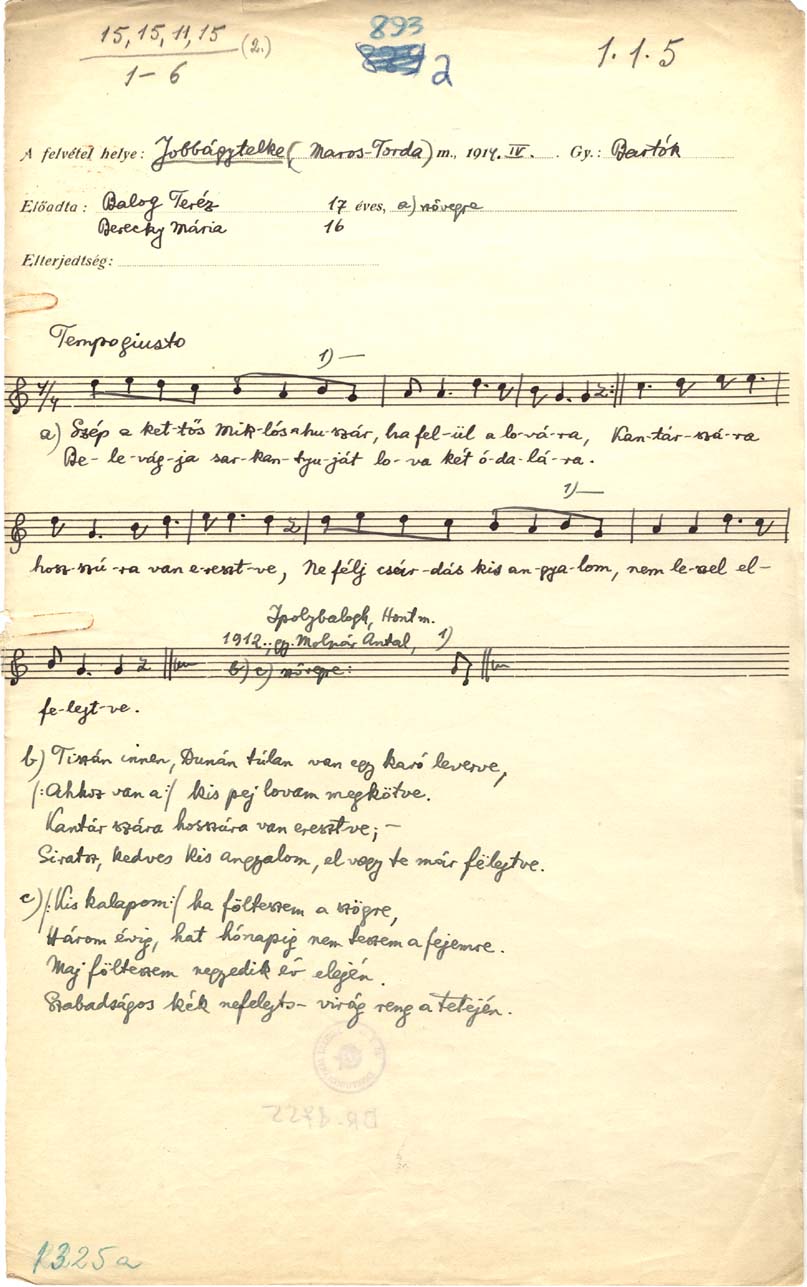 15, 15, 11, 15 (2.)
1–6
893
2
1. 1. 5
A felvétel helye: Jobbágytelke (Maros-Torda) m., 1914. IV. Gy.: Bartók
Előadta: Balog Teréz 17 éves, a) szövegre
Berecky Mária 16
Elterjedtség:
Tempo giusto
1) —
a) Szép a ket-tős Mik-lós a hu-szár, ha fel-ül a lo-vá-ra, Kan-tár-szá-ra
Be-le-vág-ja sar-kan-tyu-ját lo-va két ó-da-lá-ra.
1) —
hosz-szú-ra van e-reszt-ve, Ne félj csár-dás kis an-gya-lom, nem le-szel el-
Ipolybalogh, Hont m.
1912.; gy. Molnár Antal, 1)
b) c) szövegre:
fe-lejt-ve.
b) Tiszán innen, Dunán túlan van egy karó leverve,
|: Ahhoz van a :| kis pej lovam megkötve.
Kantár szára hosszára van eresztve; –
Siratsz, kedves kis angyalom, el vagy te már felejtve.
c) |: Kis kalapom :| ha fölteszem a szögre,
Három évig, hat hónapig nem teszem a fejemre.
Maj fölteszem negyedik év elején.
Szabadságos kék nefelejts-virág reng a tetején.
1325a